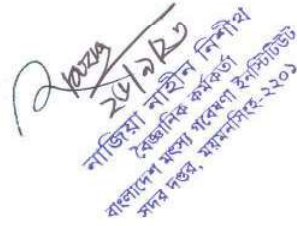 ২৫/৯/২৩
নাজিয়া নাহীন নিশীথ
বৈজ্ঞানিক কর্মকর্তা
বাংলাদেশ মৎস্য গবেষণা ইনস্টিটিউট
সদর দপ্তর, ময়মনসিংহ-২২০১